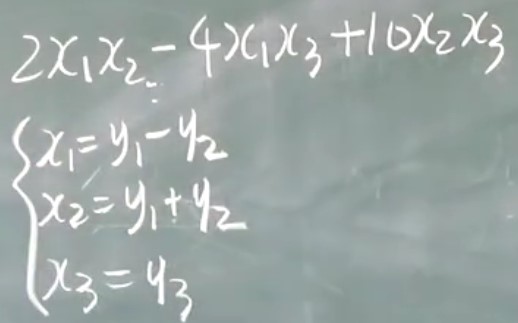 2x₁x₂ - 4x₁x₃ + 10x₂x₃
x₁ = y₁ - y₂
x₂ = y₁ + y₂
x₃ = y₃